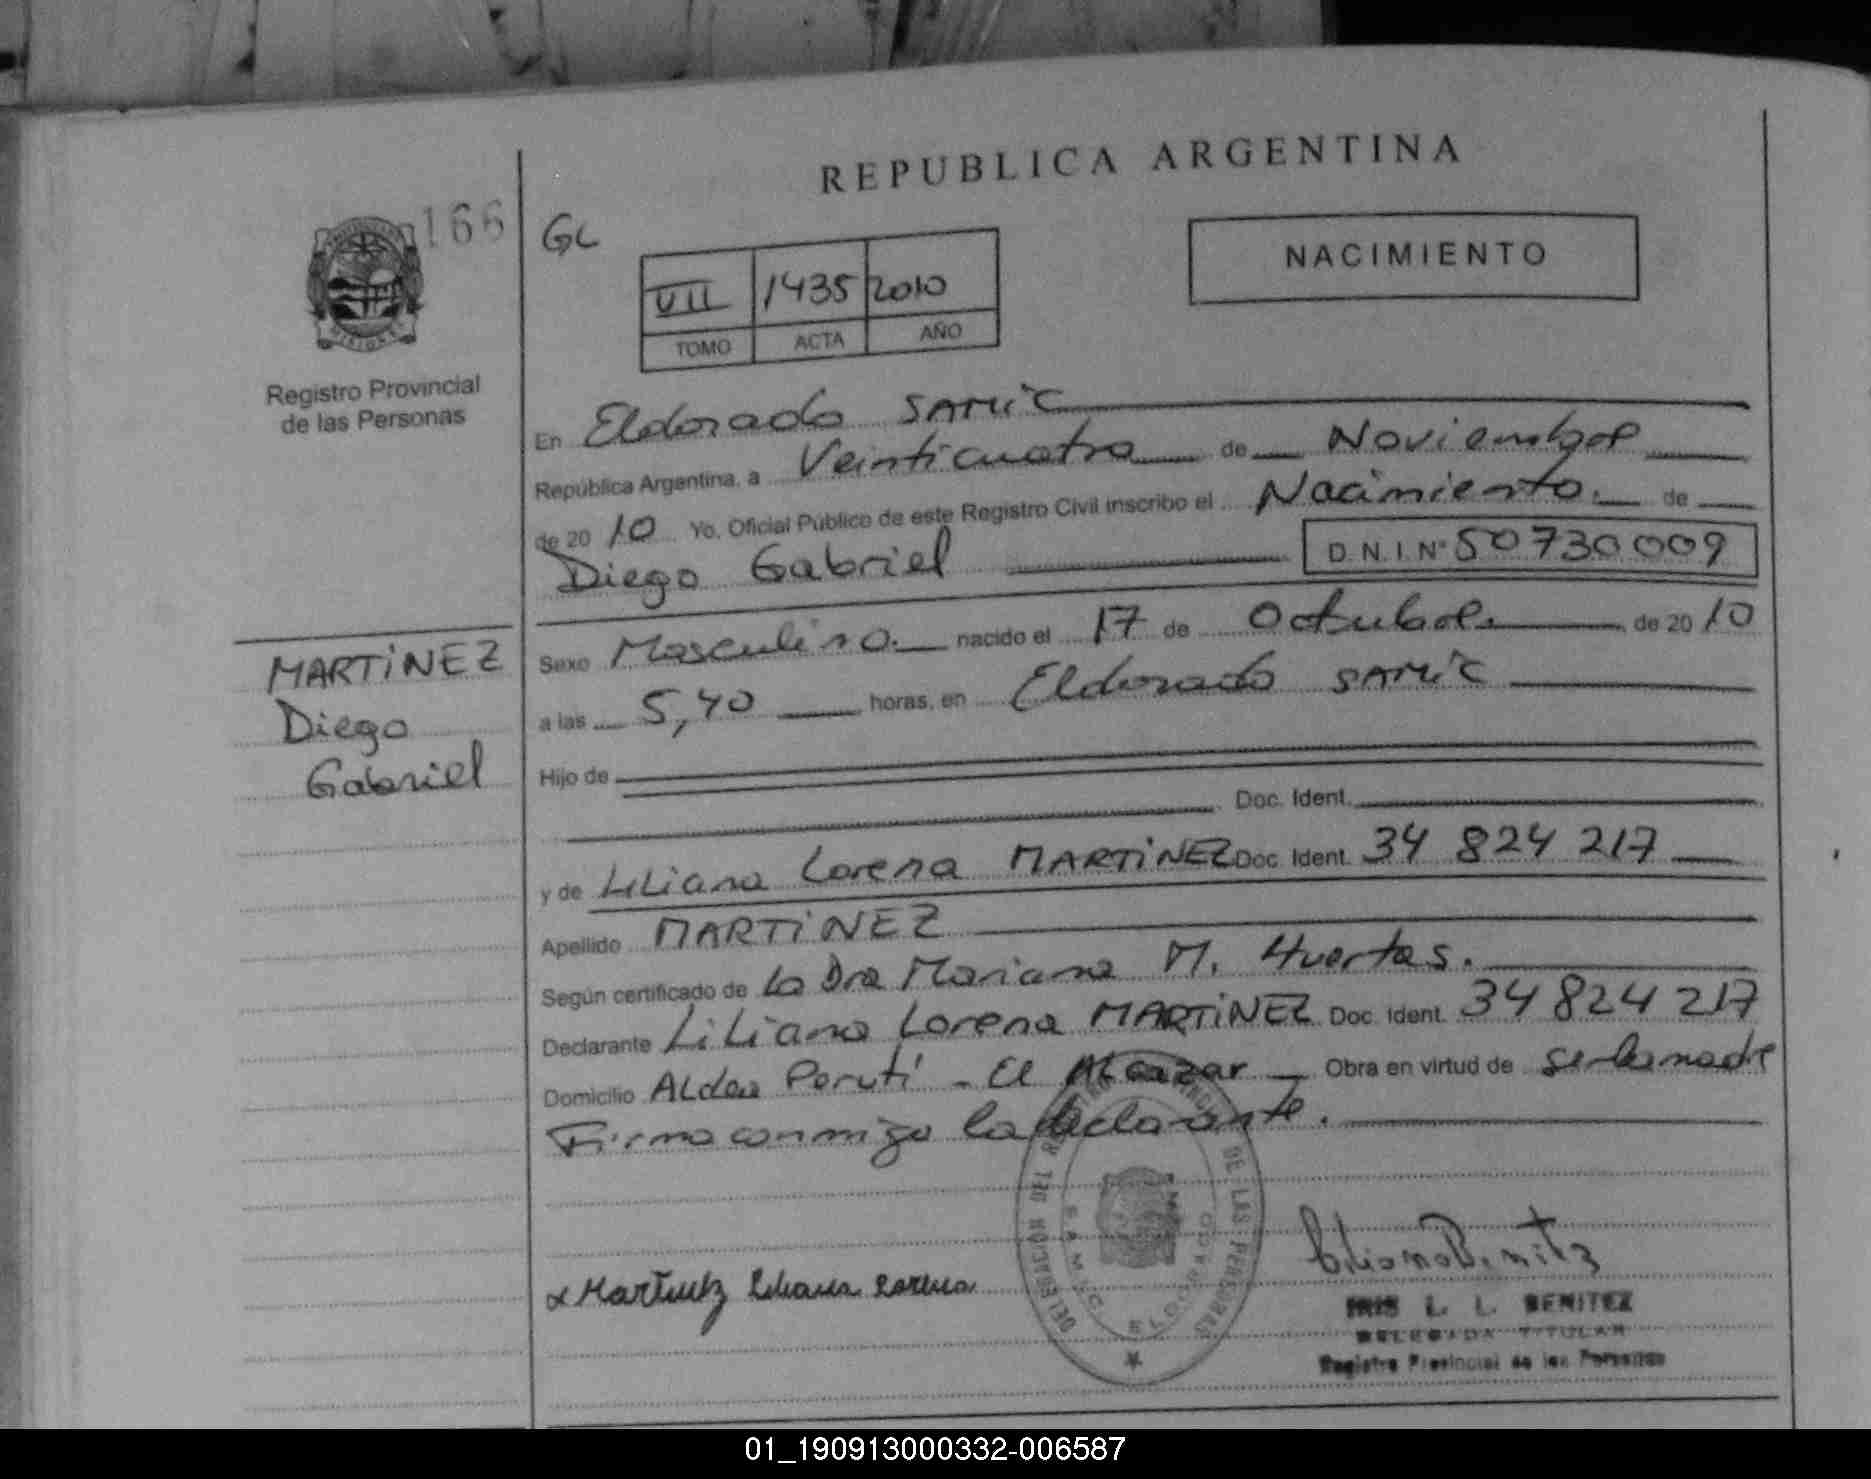 REPUBLICA ARGENTINA
166
GL
NACIMIENTO
VII 1435 2010
TOMO ACTA AÑO
MISIONES
Registro Provincial
de las Personas
En Eldorado SAMiC
República Argentina, a Veinticuatro de Noviembre
de 20 10 Yo, Oficial Público de este Registro Civil inscribo el Nacimiento. de
Diego Gabriel D.N.I.Nº 50730009
MARTiNEZ
Diego
Gabriel
Sexo Masculino. nacido el 17 de Octubre. de 20 10
a las 5,40 horas, en Eldorado SAMiC
Hijo de
Doc. Ident.
y de Liliana Lorena MARTiNEZ Doc. Ident. 34 824 217
Apellido MARTiNEZ
Según certificado de La Dra Mariana M. Huertas.
Declarante LiLiana Lorena MARTiNEZ Doc. Ident. 34 824 217
Domicilio ALdea Peruti - El Alcazar Obra en virtud de ser la madre
Firma conmigo la declarante.
DELEGACION DEL REGISTRO PROVINCIAL DE LAS PERSONAS
SAMIC ELDORADO
x Martinez Liliana Lorena
IRIS L. L. BENITEZ
DELEGADA TITULAR
Registro Provincial de las Personas
01_190913000332-006587